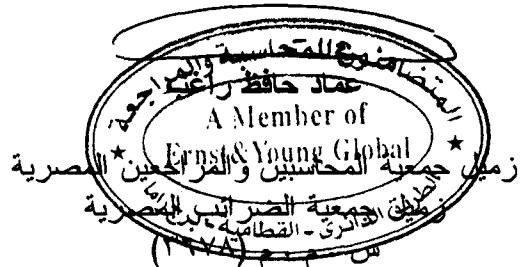 المتضامنون للمحاسبة والمراجعة
عماد حافظ راغب
A Member of
Ernst & Young Global
زميل جمعية المحاسبين والمراجعين المصرية
زميل جمعية الضرائب المصرية
الطريق الدائري - القطامية -
س . م . م (٣٦٧٨)